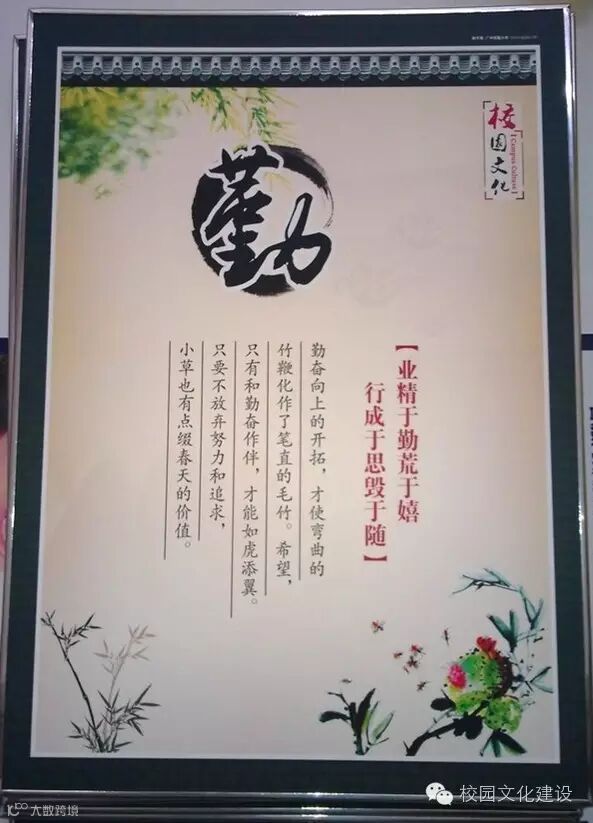 校园文化
Campus Culture
勤
【业精于勤荒于嬉
行成于思毁于随】
勤奋向上的开拓，才使弯曲的
竹鞭化作了笔直的毛竹。希望，
只有和勤奋作伴，才能如虎添翼。
只要不放弃努力和追求，
小草也有点缀春天的价值。
校园文化建设
大数跨境